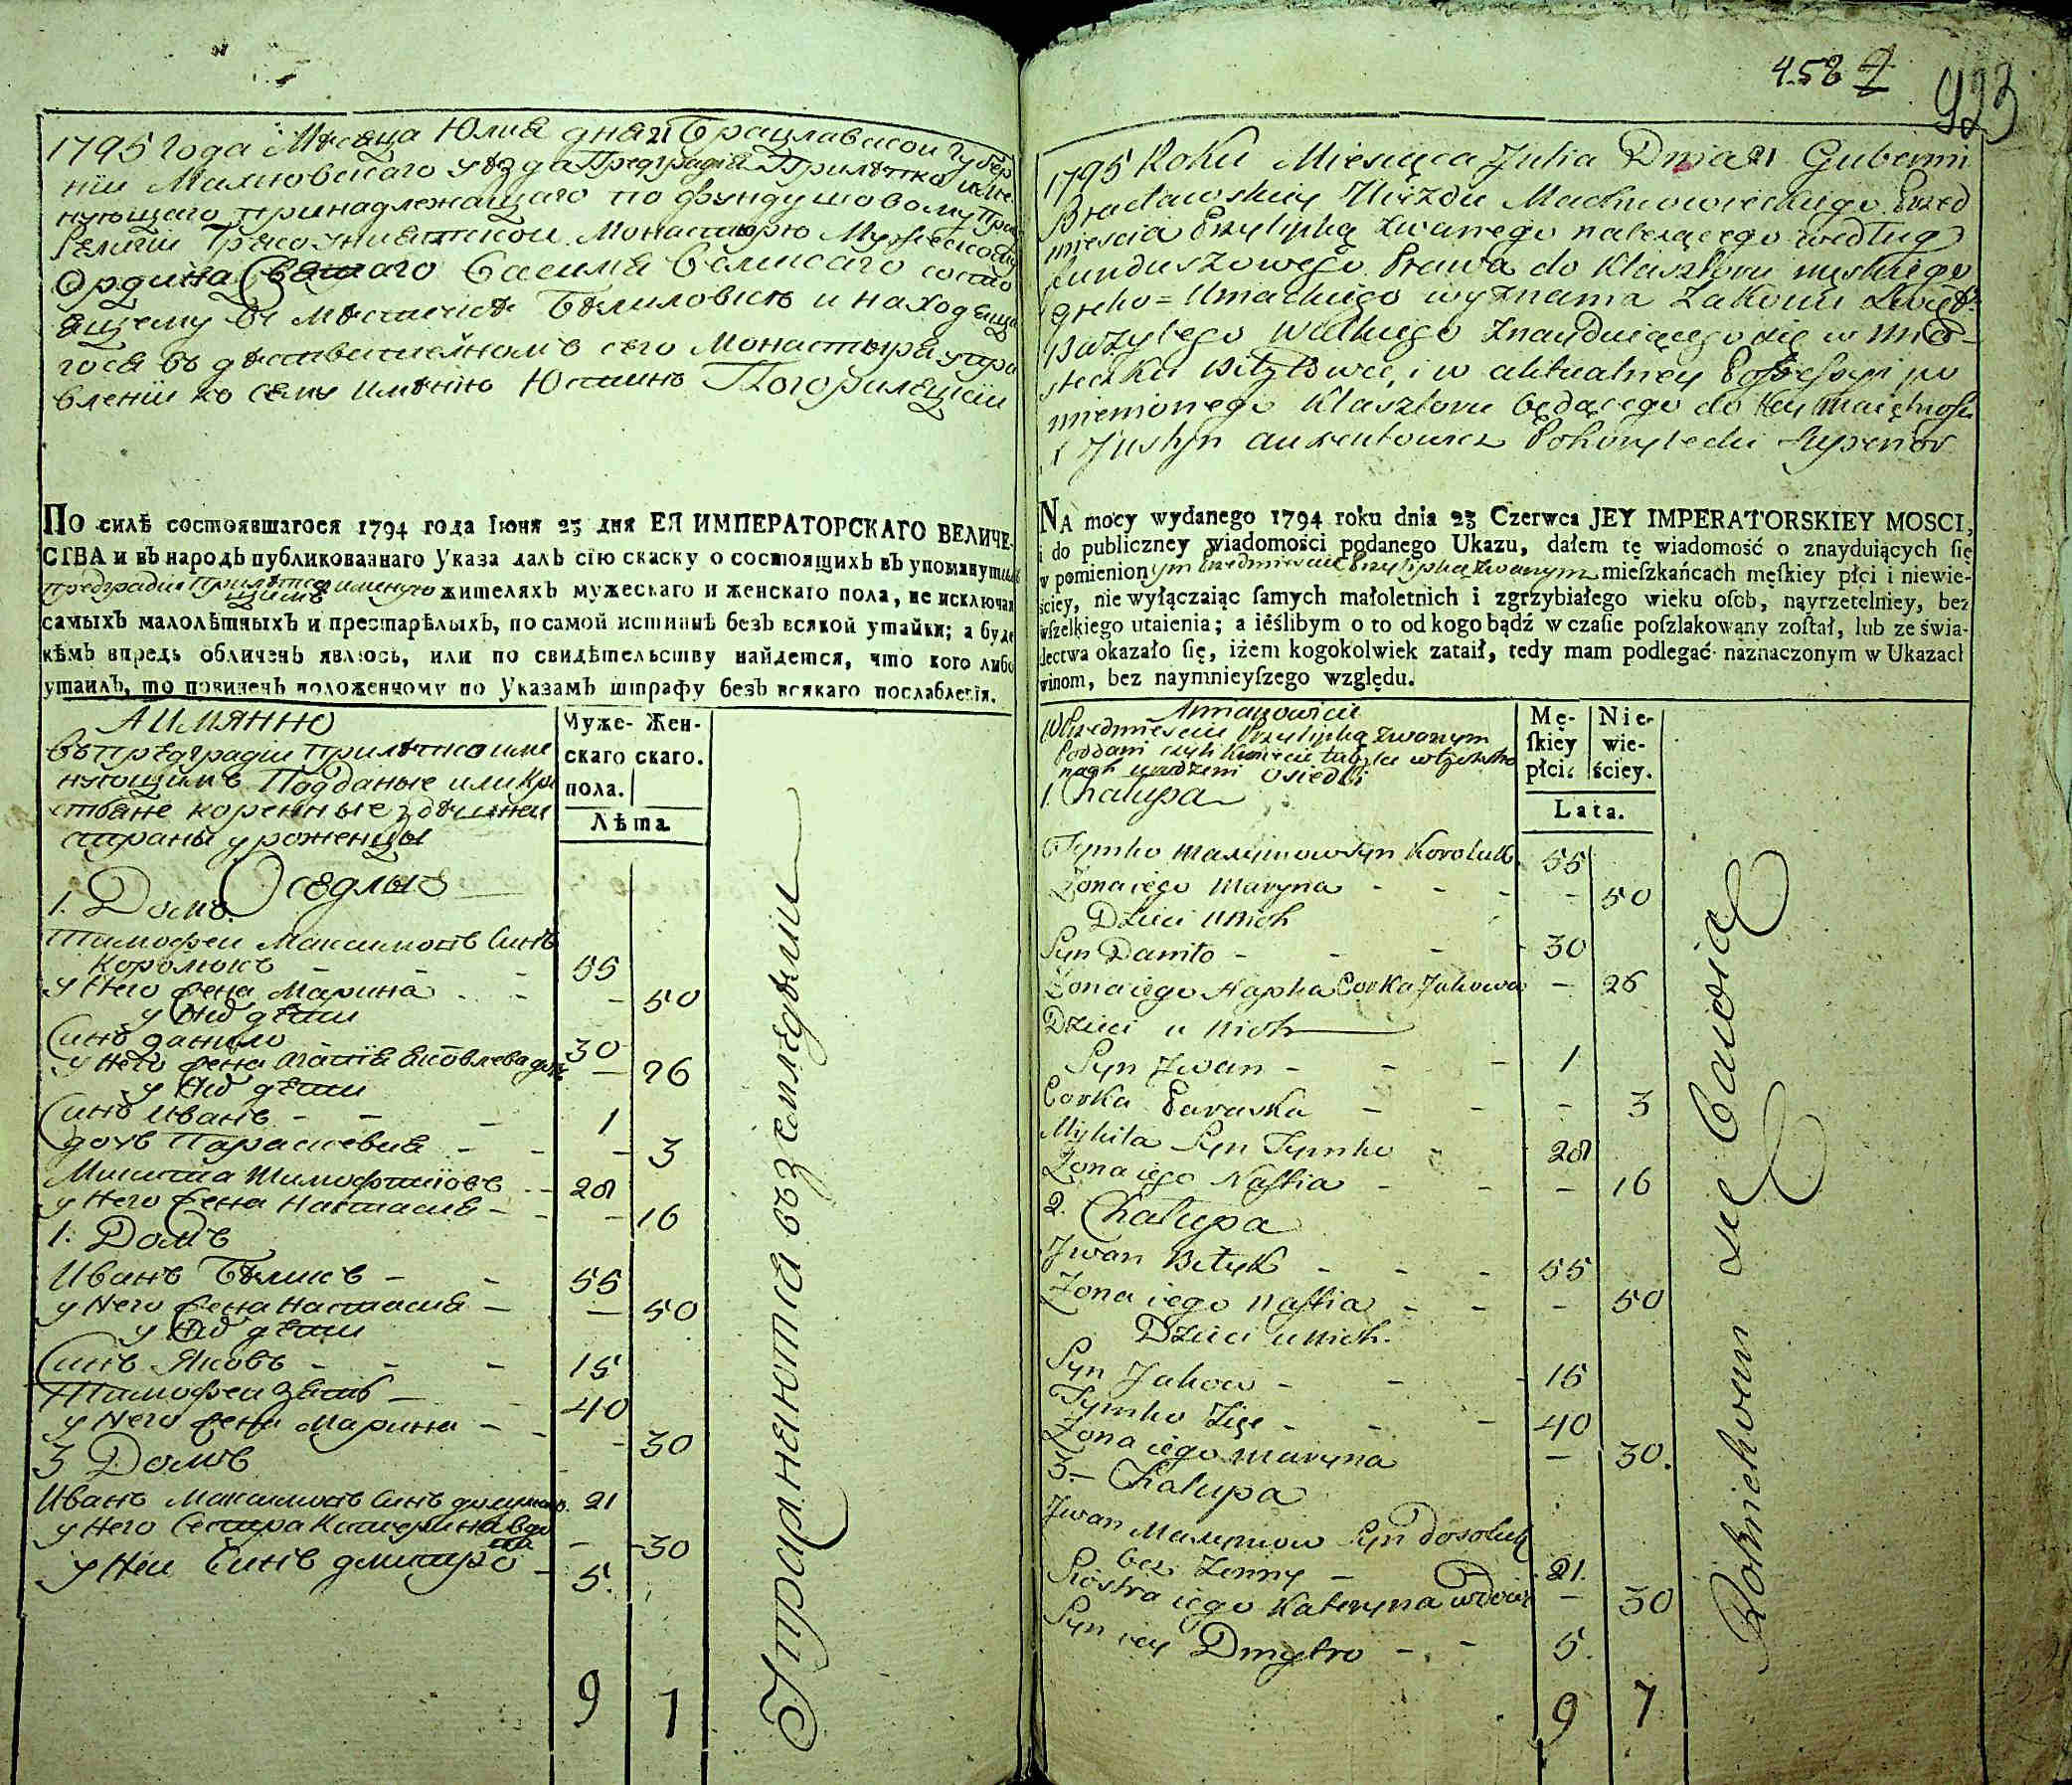 1795 года Месяца Юлия дня 21 Брацлавской Губер
нии Махновскаго уезда Предградия Прилѣпка име
нующаго принадлежащаго по фундушовому Пра
Религии Греко униатской Монастырю Мужескому
Ордина Святаго Василия Великаго состо
ящему въ Местечке Бѣлиловкѣ и находяща
гося въ дѣствительномъ сего Монастыря упра
влении ко сему имѣнию Юстинъ Погорилецкий
ПО силѣ состоявшагося 1794 года Іюня 23 дня ЕЯ ИМПЕРАТОРСКАГО ВЕЛИЧЕ-
СТВА и въ народъ публикованнаго Указа далъ сію скаску о состоящихъ въ упомянутомъ
предградии Прилѣпка именую
щимъ жителяхъ мужескаго и женскаго пола, не исключая
самыхъ малолѣтныхъ и престарѣлыхъ, по самой истиннѣ безъ всякой утайки; а буде
кѣмъ впредь обличенъ явлюсь, или по свидѣтельству найдется, что кого либо
утаилъ, то повиненъ положенному по Указамъ штрафу безъ всякаго послабленія.
А имянно
въ предградии прилѣпка име
нующимъ Подданые или Кре
стьяне коренные здѣшней
страны уроженцы
Оседлые
Муже- Жен-
скаго скаго.
пола.
Лѣта
1. Домъ
Тимофей Максимовъ Синъ
Королюкъ - - - 55
у Него Жена Марина - - - 50
у Них дети
Синъ данило - 30
у Него Жена Агапия Яковлева дочь - 26
у Них дети
Синъ Иванъ - - - 1
дочь Параскевия - - - 3
Микита Тимофтиювъ - - 28
у Него Жена Настасия - - - 16
1. Домъ
Иванъ Бѣликъ - - 55
у Него Жена Настасия - - 50
у Них дети
Синъ Яковъ - - - 15
Тимофей Зять - - 40
у Него Жена Марина - - - 30
3 Домъ
Иванъ Максимовъ Синъ 21
у Него Сестра Катерина вдо
ва - 30
у Ней Синъ дмитро - 5.
9 7
Іправнаюта въ землѣдылии
458
923
1795 Roku Miesiąca Julia Dnia 21 Gubernii
Bracławskiey Uiezdu Machnowieckiego Przed
miescia Przylipką zwanego należącego według
funduszowego Prawa do Klasztoru męskiego
greko=Uniackiego wyznania Zakonu Święt:
Bazylego Wielkiego Znayduiącego się w Mia-
steczku Biłyłówce, i w aktualney Possessyi po
mienionego Klasztoru będącego do tey Maiętnosci
X Justyn auxentowicz Pohorylecki Superior
NA mocy wydanego 1794 roku dnia 23 Czerwca JEY IMPERATORSKIEY MOSCI,
i do publiczney wiadomości podanego Ukazu, dałem tę wiadomość o znayduiących się
w pomienionym Przedmiesciu Przylipką zwanym mieſzkańcach męſkiey płci i niewie-
ściey, nie wyłączaiąc ſamych małoletnich i zgrzybiałego wieku oſob, nayrzetelniey, bez
wſzelkiego utaienia; a ieślibym o to od kogo bądź w czaſie poſzlakowany zoſtał, lub ze świa-
dectwa okazało ſię, iżem kogokolwiek zataił, tedy mam podlegać naznaczonym w Ukazach
winom, bez naymnieyſzego względu.
Mianowicie
W Przedmiesciu Przylipką zwanym
Poddani czyli Kmiecie tuteysi w tych stro
nach urodzeni Osiedli
Mę-
ſkiey
płci.
Nie-
wie-
ściey.
Lata.
1. Chałupa
Tymko Maxymow Syn Koroluk 55
Zona iego Maryna - - - - 50
Dzieci u nich
Syn Daniło - - - 30
Zona iego Hapka Corka Jakowa - 26
Dzieci u nich
Syn Jwan - - - 1
Corka Paraska - - - 3
Mykita Syn Tymko - 28
Zona iego Nastia - - - 16
2. Chałupa
Jwan Biłyk - - - 55
Zona iego Nastia - - - 50
Dzieci u nich.
Syn Jakow - - - 15
Tymko Zięć - - - 40
Zona iego Maryna - 30.
3.- Chałupa
Jwan Maxymow Syn
bez Zenny - 21.
Siostra iego Kateryna wdowa - 30
Syn iey Dmytro - - 5.
9 7
Rolnictwem się bawią